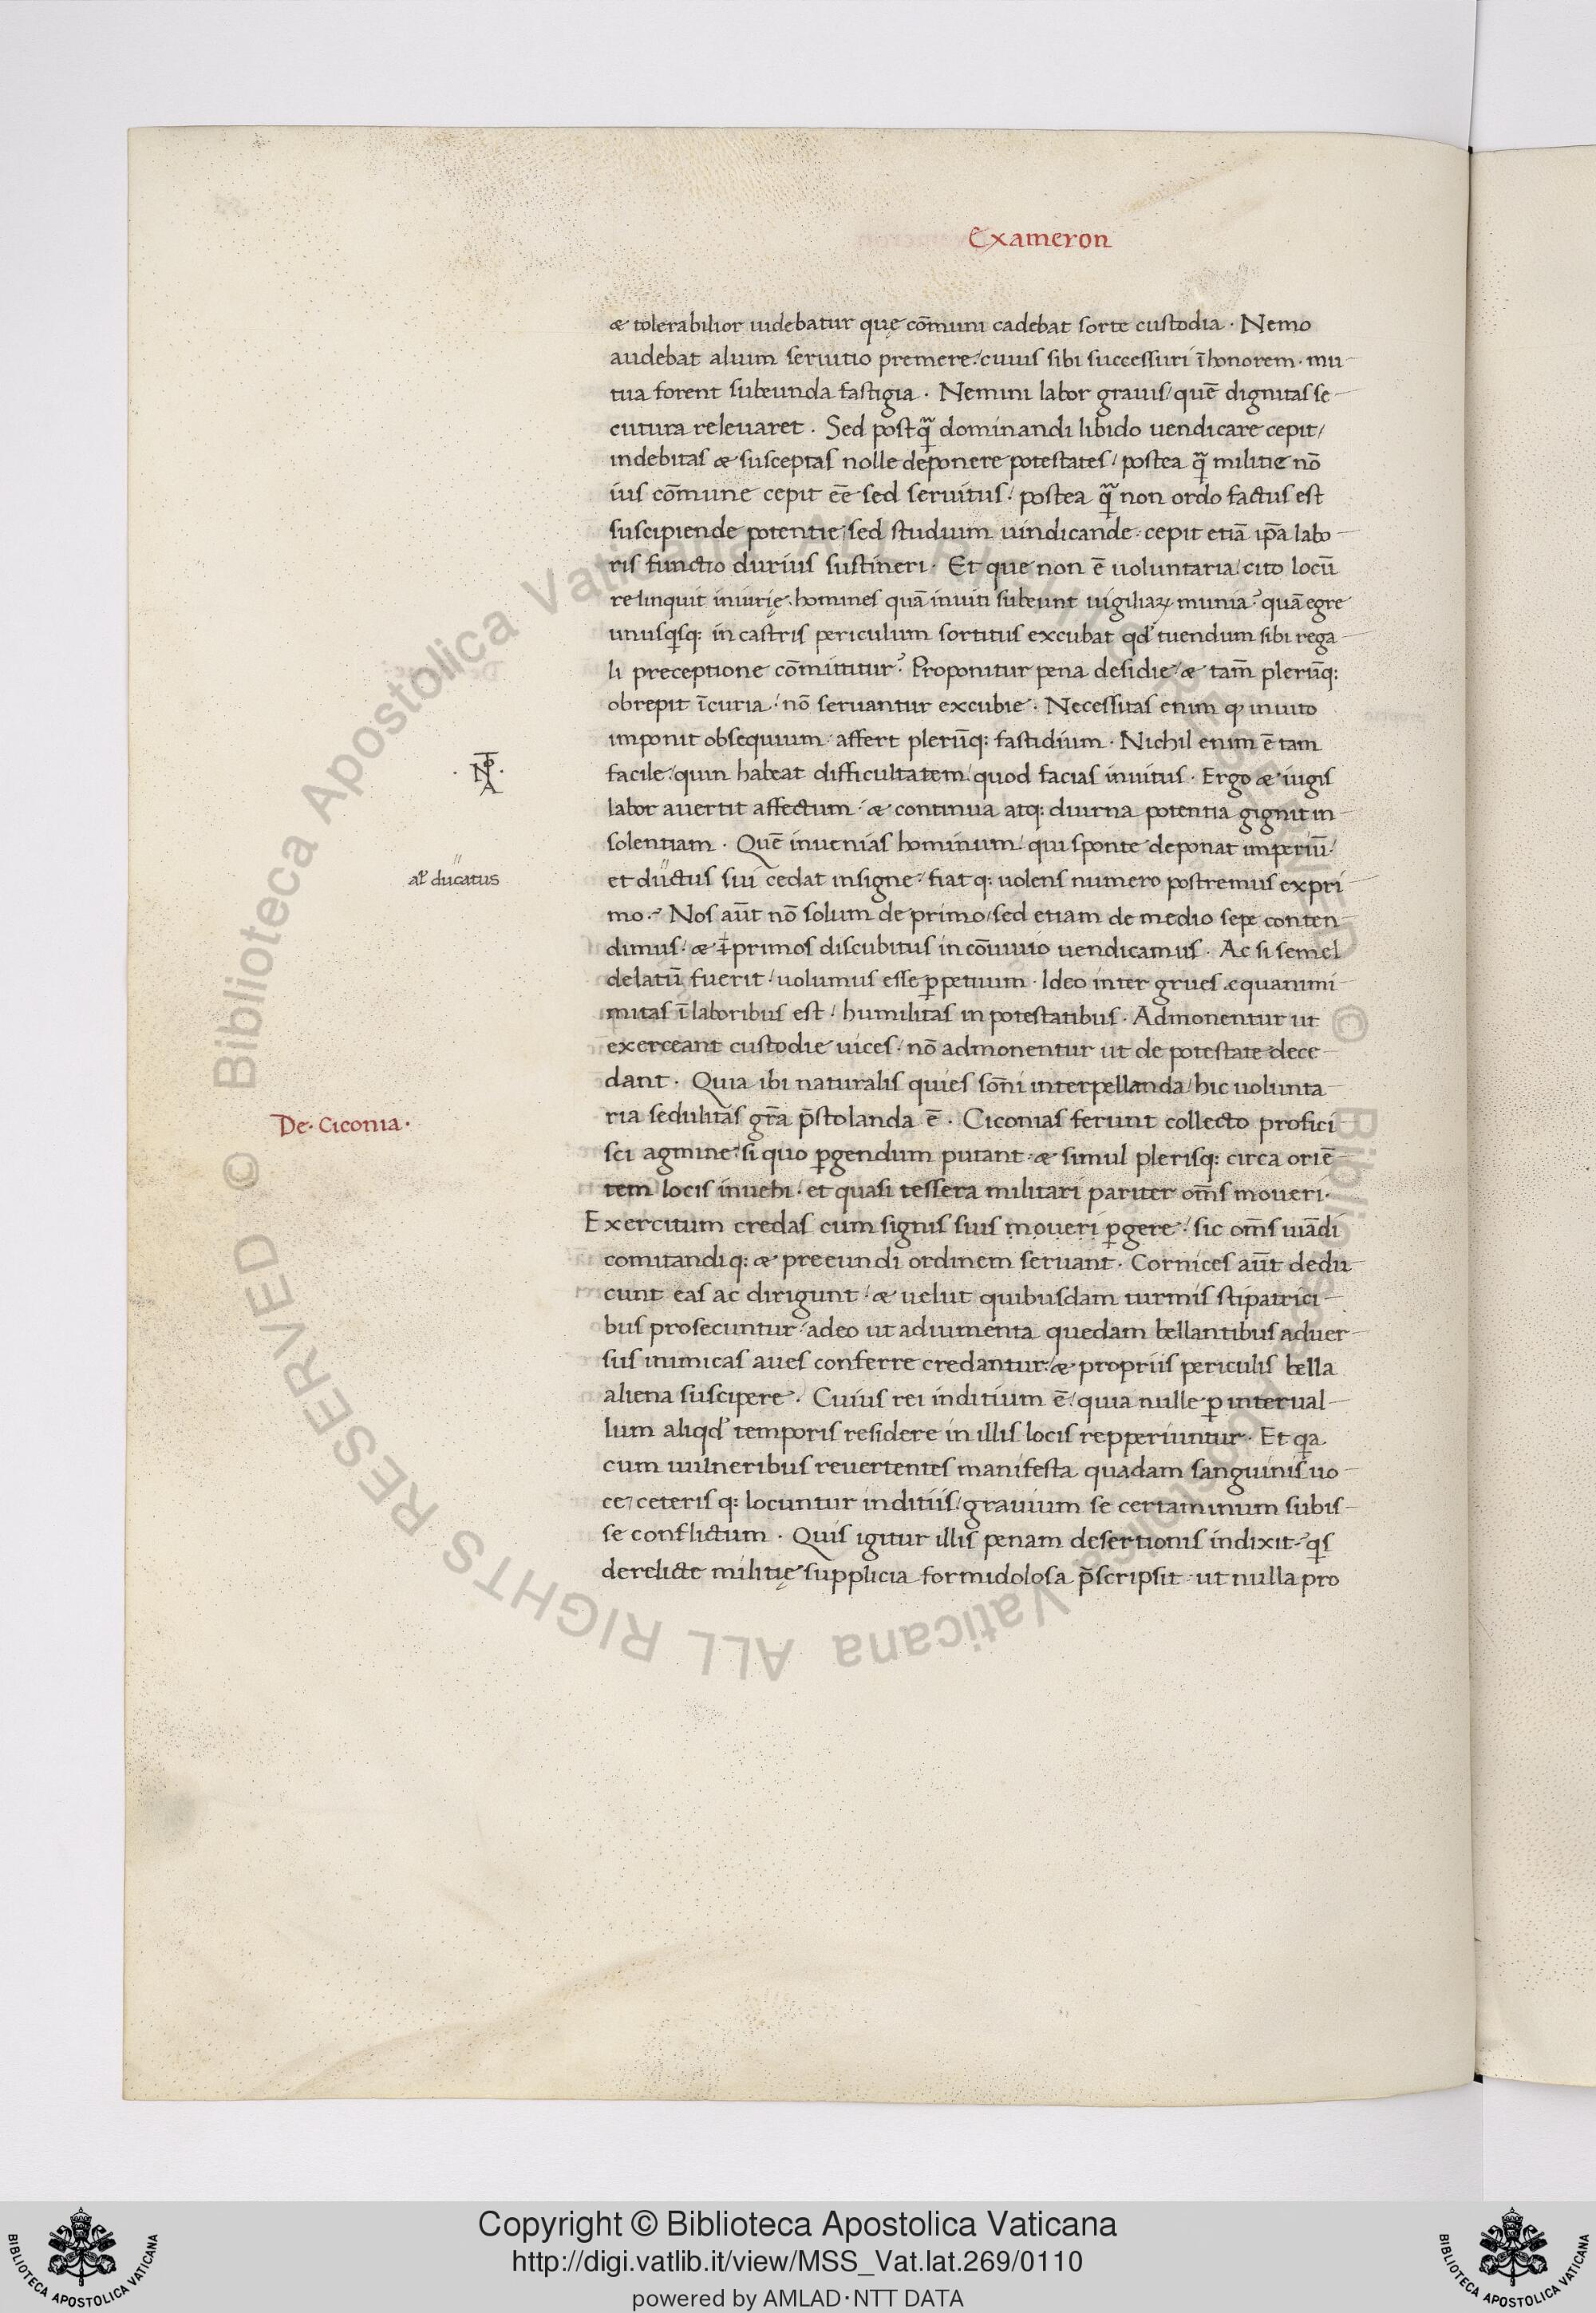 Exameron
æ tolerabilior uidebatur quę cōmuni cadebat sorte custodia · Nemo
audebat alium seruitio premere / cuius sibi successuri ī honorem · mu
tua forent subeunda fastigia · Nemini labor grauis / quē dignitas se
cutura releuaret · Sed postq̄ dominandi libido uendicare cepit /
indebitas æ susceptas nolle deponere potestates / postea q̄ militie nō
ius cōmune cepit ēē sed seruitus / postea q̄ non ordo factus est
suscipiende potentie / sed studium uindicande · cepit etiā ip̄a labo
ris functio durius sustineri · Et que non ē uoluntaria / cito locū
relinquit iniurię · homines quā inuiti subeunt uigiliaꝝ munia? quā egre
unusqsq: in castris periculum sortitus excubat qd' tuendum sibi rega
li preceptione cōmittitur? Proponitur pena desidie / æ tam̄ plerūq:
obrepit īcuria / nō seruantur excubie · Necessitas enim q̨ inuito
imponit obsequium / affert plerūq: fastidium · Nichil enim ē tam
· NPTA ·
facile / quin habeat difficultatem / quod facias inuitus · Ergo æ iugis
labor auertit affectum / æ continua atq: diurna potentia gignit in
solentiam · Quē inuenias hominum / qui sponte deponat imperiū /
al' ducatus
et ductus sui cedat insigne / fiat q: uolens numero postremus ex pri
mo · Nos aūt nō solum de primo / sed etiam de medio sepe conten
dimus / æ ī primos discubitus in cōuiuio uendicamus · Ac si semel
delatū fuerit / uolumus esse ꝑpetuum · Ideo inter grues æquanimi
mitas ī laboribus est / humilitas in potestatibus · Admonentur ut
exerceant custodie uices / nō admonentur ut de potestate dece
dant · Quia ibi naturalis quies som̄i interpellanda / hic uolunta
De · Ciconia ·
ria sedulitas gr̄a p̄stolanda ē · Ciconias ferunt collecto profici
sci agmine / si quo ꝑgendum putant · æ simul plerisq: circa oriē
tem locis inuehi / et quasi tessera militari pariter om̄s moueri ·
Exercitum credas cum signis suis moueri ꝑgere / sic om̄s uiādi
comitandi q: æ preeundi ordinem seruant · Cornices aūt dedu
cunt eas ac dirigunt / æ uelut quibusdam turmis stipatrici
bus prosecuntur / adeo ut adiumenta quedam bellantibus aduer
sus inimicas aues conferre credantur / æ propriis periculis bella
aliena suscipere · Cuius rei inditium ē / quia nulle ꝑ interual
lum aliqd' temporis residere in illis locis repperiuntur · Et qa
cum uulneribus reuertentes manifesta quadam sanguinis uo
ce / ceteris q: locuntur inditiis / grauium se certaminum subis
se conflictum · Quis igitur illis penam desertionis indixit? qs
derelicte militię supplicia formidolosa p̄scripsit / ut nulla pro
© Biblioteca Apostolica Vaticana ALL RIGHTS RESERVED © Biblioteca Apostolica Vaticana ALL RIGHTS RESERVED
Copyright © Biblioteca Apostolica Vaticana
http://digi.vatlib.it/view/MSS_Vat.lat.269/0110
powered by AMLAD·NTT DATA
BIBLIOTECA APOSTOLICA VATICANA
BIBLIOTECA APOSTOLICA VATICANA